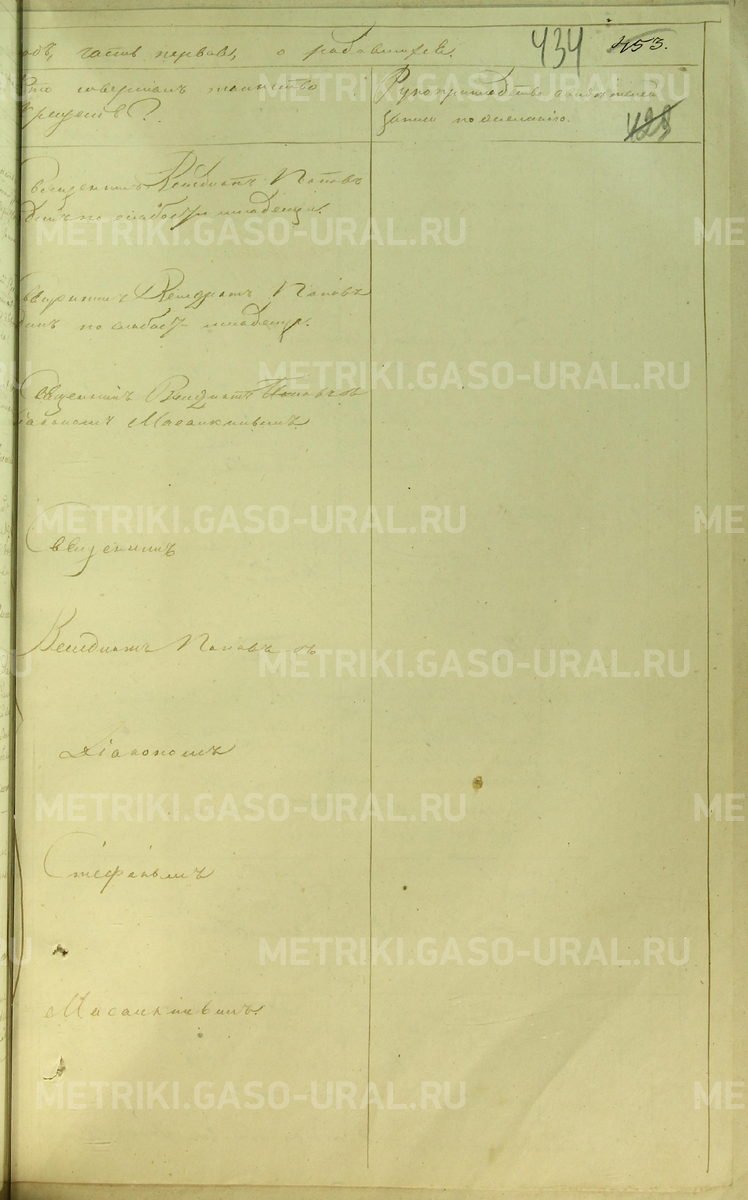 годъ, часть первая, о родившихся.
434 453.
Кто совершалъ таинство
крещенія?
Рукоприкладство свидѣтелей
записи по желанію.
423
Священникъ Венедиктъ Поповъ
единъ по слабости младенца.
Священникъ Венедиктъ Поповъ
единъ по слабости младенца.
Священникъ Венедиктъ Поповъ съ
Діакономъ
Священникъ
Венедиктъ Поповъ съ
Діакономъ
Стефаномъ
METRIKI.GASO-URAL.RU